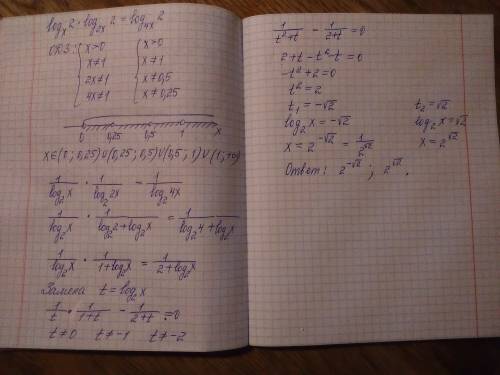 logₓ2 · log₂ₓ2 = log₄ₓ2
ОДЗ: { x>0 { x>0
x≠1 x≠1
2x≠1 x≠0,5
4x≠1 x≠0,25
0 0,25 0,5 1 x
x∈(0; 0,25)∪(0,25; 0,5)∪(0,5; 1)∪(1; +∞)
1/log₂x · 1/log₂2x = 1/log₂4x
1/log₂x · 1/(log₂2+log₂x) = 1/(log₂4+log₂x)
1/log₂x · 1/(1+log₂x) = 1/(2+log₂x)
Замена t = log₂x
1/t · 1/(1+t) - 1/(2+t) = 0
t≠0 t≠-1 t≠-2
1/(t²+t) - 1/(2+t) = 0
2+t-t²-t=0
-t²+2=0
t²=2
t₁=-√2 t₂=√2
log₂x=-√2 log₂x=√2
x=2^(-√2) = 1/2^(√2) x=2^(√2)
Ответ: 2^(-√2); 2^(√2).